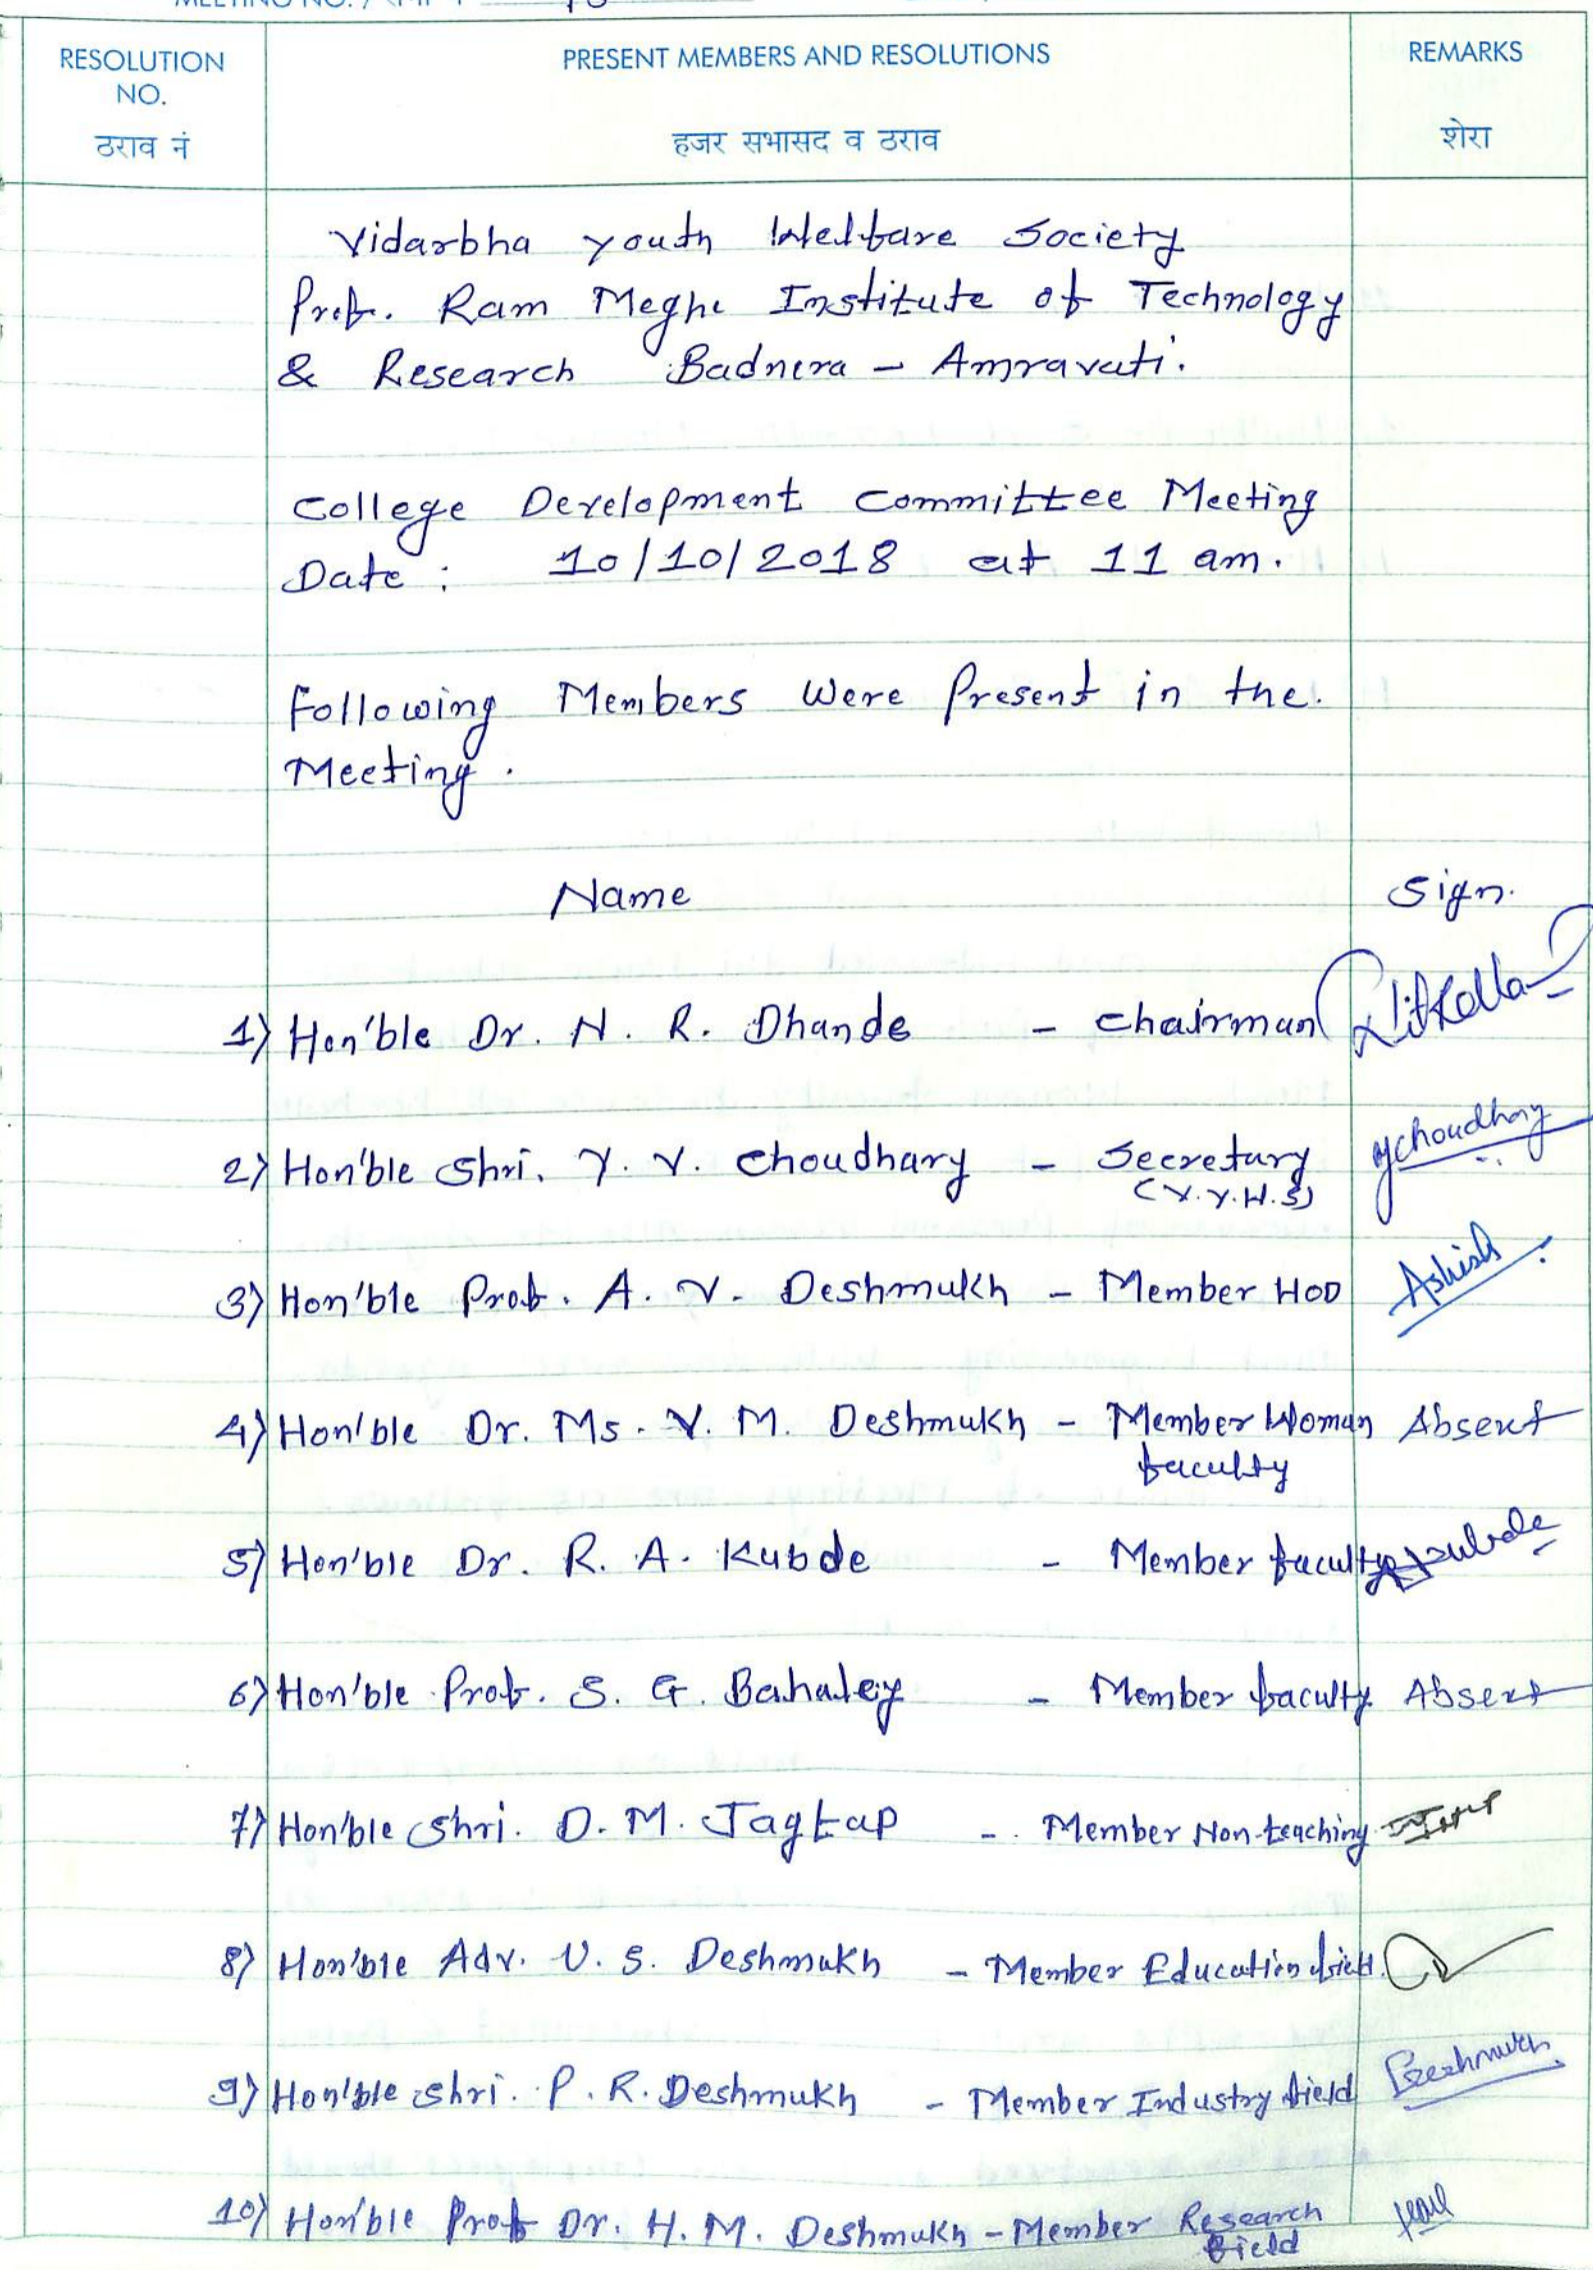 RESOLUTION NO.
ठराव नं
PRESENT MEMBERS AND RESOLUTIONS
हजर सभासद व ठराव
REMARKS
शेरा
Vidarbha Youth Welfare Society
Prof. Ram Meghe Institute of Technology
& Research Badnera - Amravati.
College Development Committee Meeting
Date : 10/10/2018 at 11 am.
Following Members Were Present in the.
Meeting.
Name Sign.
1) Hon'ble Dr. N. R. Dhande - Chairman
2) Hon'ble Shri. Y. V. Choudhary - Secretary ychoudhary
(V.Y.W.S)
3) Hon'ble Prof. A. V. Deshmukh - Member HOD Ashish
4) Hon'ble Dr. Ms. V. M. Deshmukh - Member Woman Absent
faculty
5) Hon'ble Dr. R. A. Kubde - Member faculty
6) Hon'ble Prof. S. G. Bahaley - Member faculty Absent
7) Hon'ble Shri. D. M. Jagtap - Member Non-teaching
8) Hon'ble Adv. U. S. Deshmukh - Member Education field.
9) Hon'ble Shri. P. R. Deshmukh - Member Industry field
10) Hon'ble Prof Dr. H. M. Deshmukh - Member Research
field